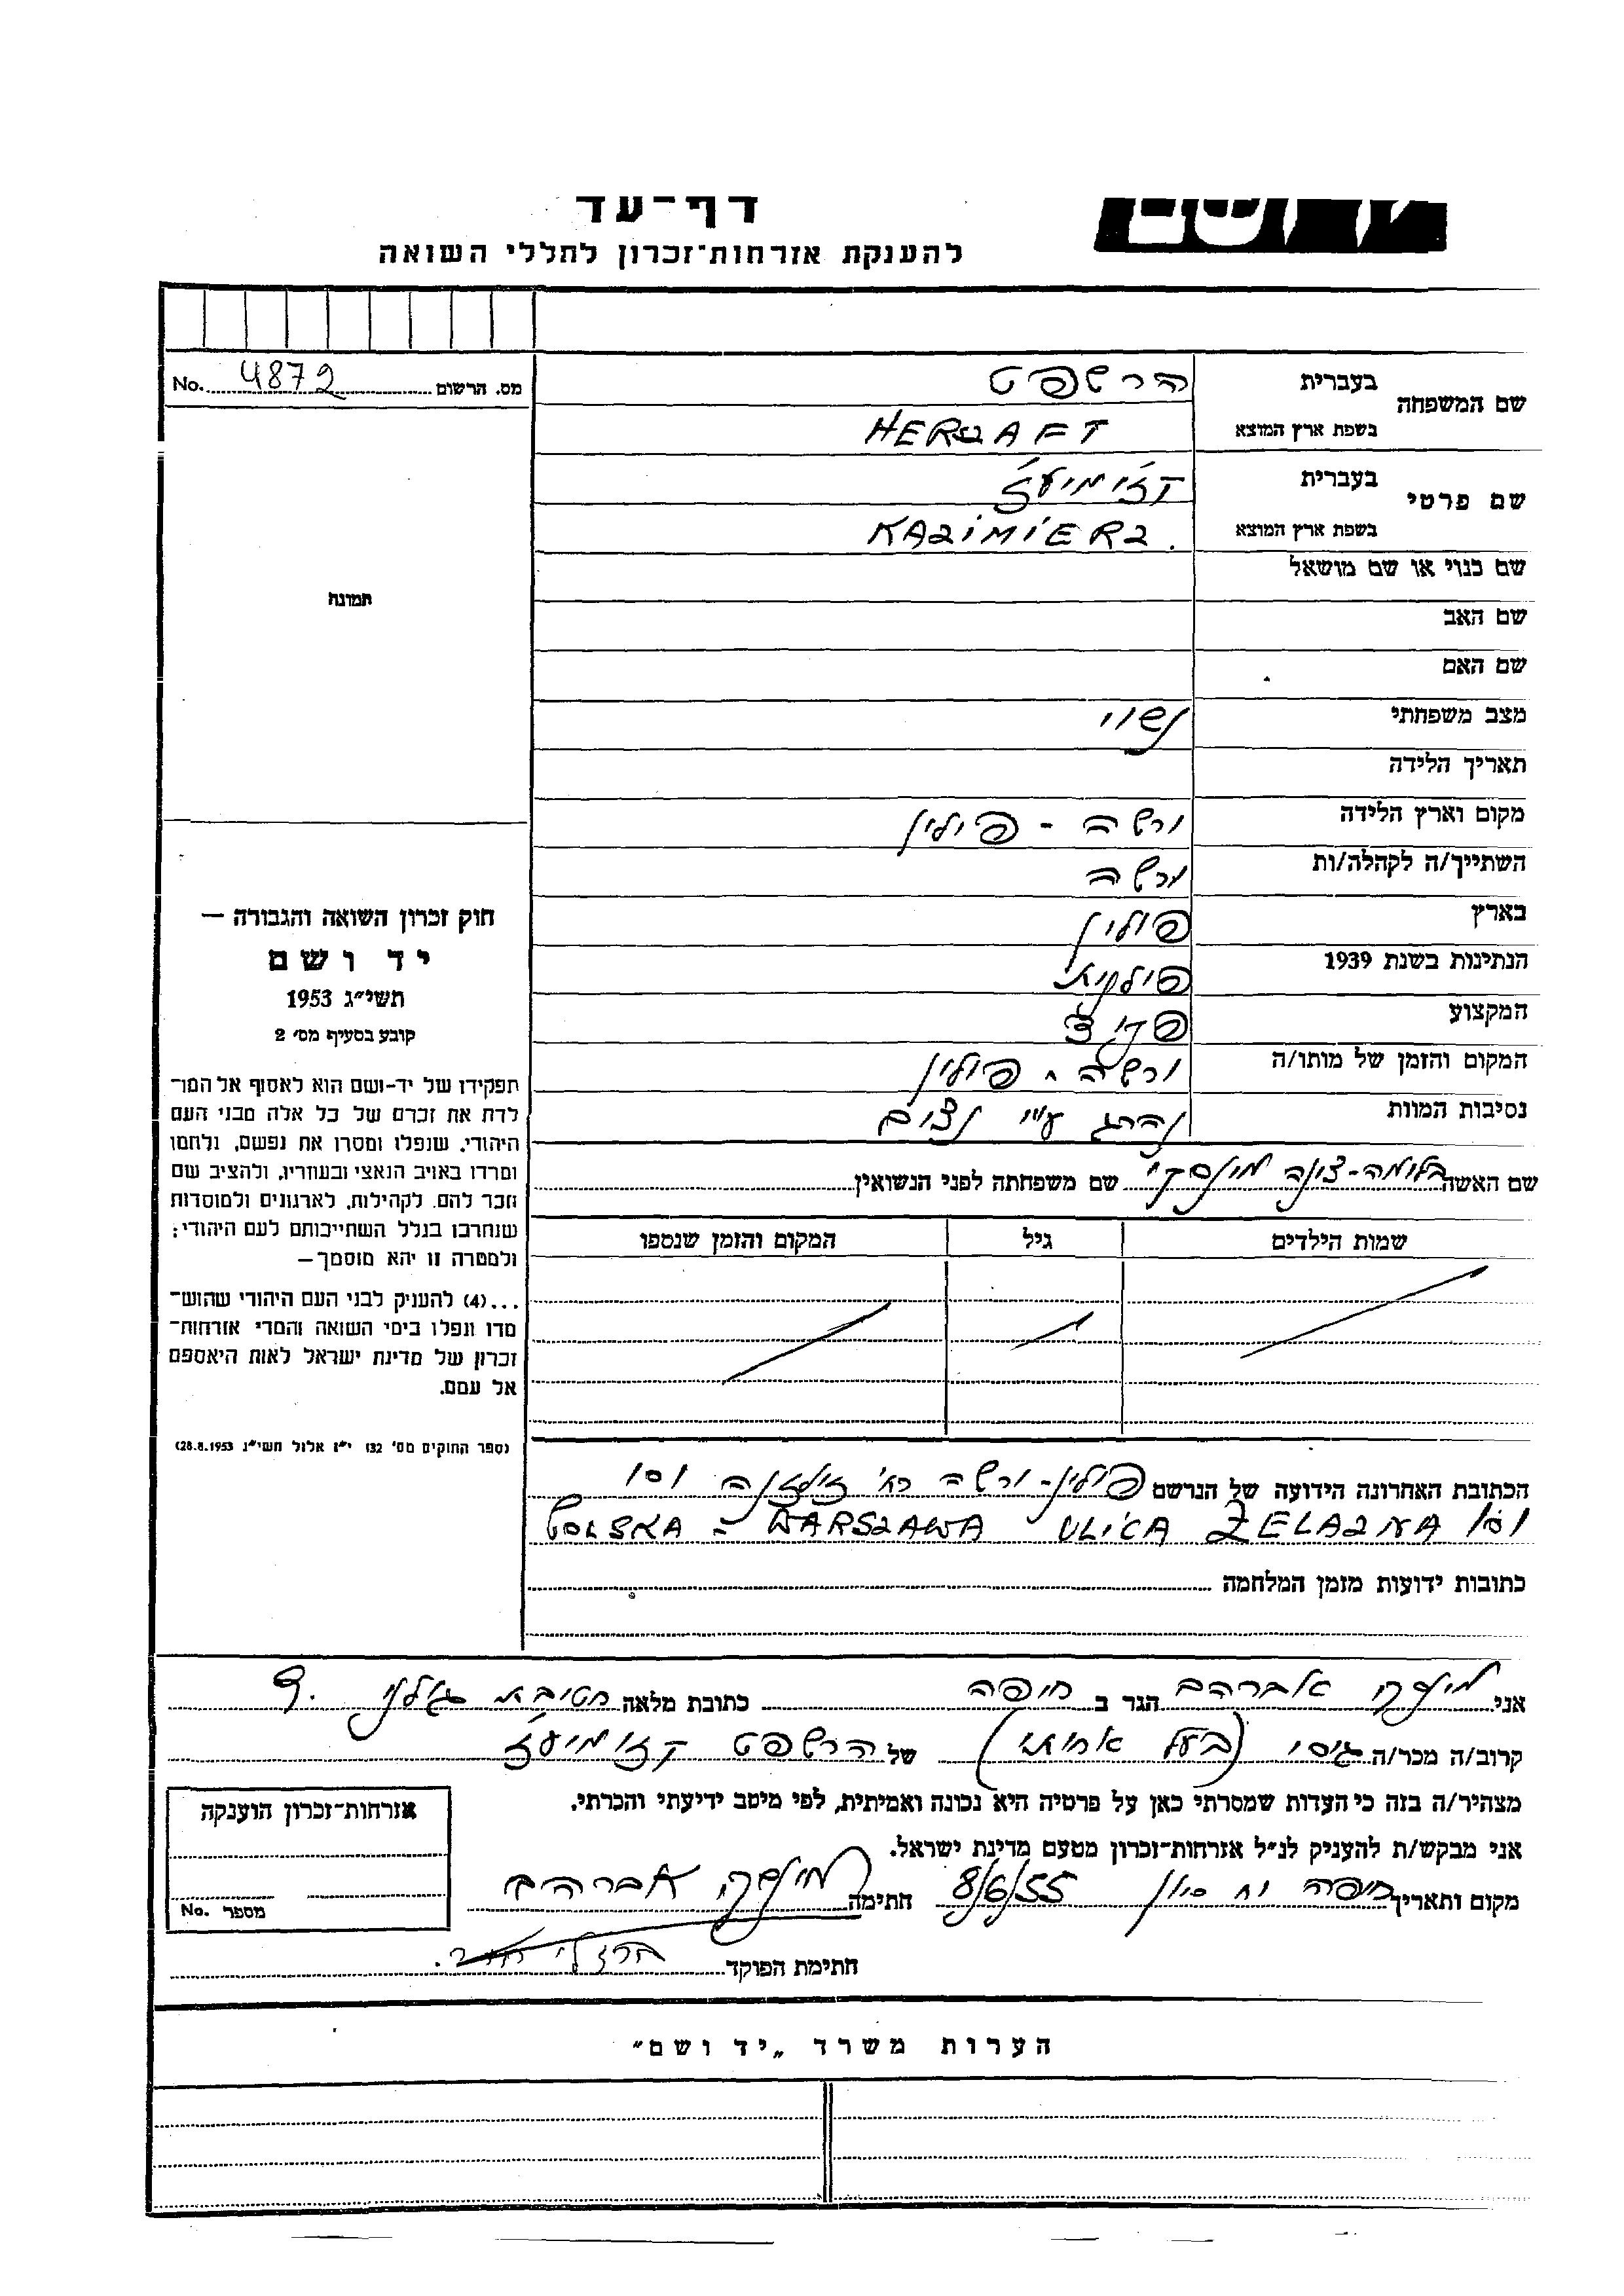 ושם
דף־עד
להענקת אזרחות־זכרון לחללי השואה
No. 4872 מס. הרשום
שם המשפחה בעברית הרשפט
בשפת ארץ המוצא HERSZAFT
שם פרטי בעברית קזימיעז
בשפת ארץ המוצא KAZIMIERZ
שם כנוי או שם מושאל
שם האב
שם האם
מצב משפחתי נשוי
תאריך הלידה
מקום וארץ הלידה ורשה - פולין
השתייך/ה לקהלה/ות ורשה
בארץ פולין
הנתינות בשנת 1939 פולנית
המקצוע פקיד
המקום והזמן של מותו/ה ורשה - פולין
נסיבות המוות נהרג ע״י נצים
שם האשה בלומה- מינסקי שם משפחתה לפני הנשואין
שמות הילדים גיל המקום והזמן שנספו
תמונה
חוק זכרון השואה והגבורה —
יד ושם
תשי״ג 1953
קובע בסעיף מס׳ 2
תפקידו של יד-ושם הוא לאסוף אל המו־
לדת את זכרם של כל אלה מבני העם
היהודי, שנפלו ומסרו את נפשם, נלחמו
ומרדו באויב הנאצי ובעוזריו, ולהציב שם
וזכר להם, לקהילות, לארגונים ולמוסדות
שנחרבו בגלל השתייכותם לעם היהודי;
ולמטרה זו יהא מוסמך —
...(4) להעניק לבני העם היהודי שהוש־
מדו ונפלו בימי השואה והמרי אזרחות־
זכרון של מדינת ישראל לאות היאספם
אל עמם.
(ספר החוקים מס׳ 132 י״ז אלול תשי״ג 28.8.1953)
הכתובת האחרונה הידועה של הנרשם פולין-ורשה רח׳ זילזנה 101
POLSKA - WARSZAWA ULICA ŻELAZNA 101
כתובות ידועות מזמן המלחמה
אני מינסקי אברהם הגר ב חיפה כתובת מלאה חטיבת גולני 9.
קרוב/ה מכר/ה גיסי (בעל אחותי) של הרשפט קזימיעז
מצהיר/ה בזה כי העדות שמסרתי כאן על פרטיה היא נכונה ואמיתית, לפי מיטב ידיעתי והכרתי.
אני מבקש/ת להעניק לנ״ל אזרחות־זכרון מטעם מדינת ישראל.
מקום ותאריך חיפה 8/6/55 חתימה מינסקי אברהם
חתימת הפוקד
אזרחות־זכרון הוענקה
מספר No.
הערות משרד „יד ושם״